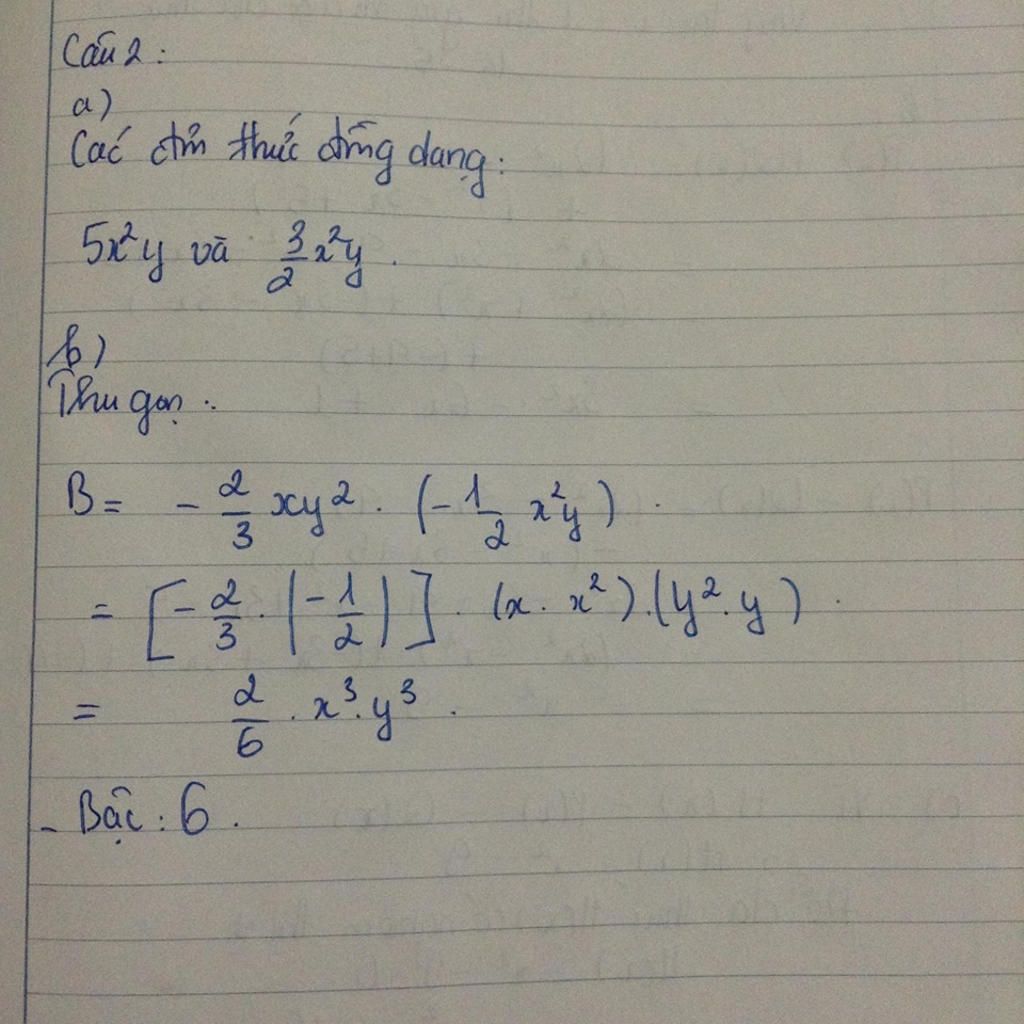 Câu 2 :
a)
Các đơn thức đồng dạng :
5x²y và 3/2 x²y .
b)
Thu gọn :
B = - 2/3 xy² . (- 1/2 x²y) .
= [- 2/3 . (- 1/2)] . (x . x²) . (y² . y) .
= 2/6 . x³ . y³ .
- Bậc : 6 .